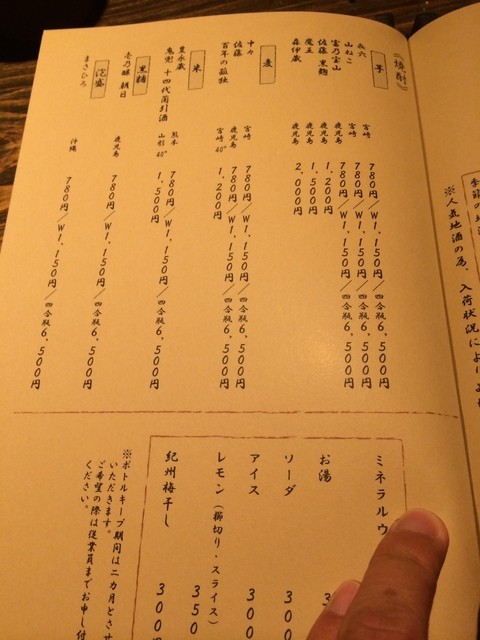 焼酎
芋
㐂六 宮崎 780円／W1,150円／四合瓶6,500円
山ねこ 宮崎 780円／W1,150円／四合瓶6,500円
富乃宝山 鹿児島 780円／W1,150円／四合瓶6,500円
佐藤 黒麹 鹿児島 1,200円
魔王 鹿児島 1,500円
森伊蔵 鹿児島 2,000円
麦
中々 宮崎 780円／W1,150円／四合瓶6,500円
佐藤 鹿児島 780円／W1,150円／四合瓶6,500円
百年の孤独 宮崎 40° 1,200円
米
豊永蔵 熊本 780円／W1,150円／四合瓶6,500円
鬼兜 十四代蘭引酒 山形 40° 1,500円
黒糖
壱乃醸 朝日 鹿児島 780円／W1,150円／四合瓶6,500円
泡盛
まさひろ 沖縄 780円／W1,150円／四合瓶6,500円
ミネラルウ
お湯
ソーダ 300
アイス 300
レモン（櫛切り・スライス） 350
紀州梅干し 300円
※ボトルキープ期間は二カ月とさせ
いただきます。
ご希望の際は従業員までお申し付
ください。
※人気地酒の為、入荷状況により